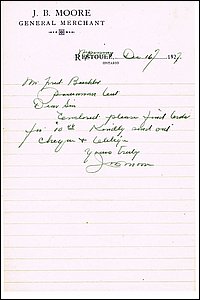 J. B. MOORE
GENERAL MERCHANT
RESTOULE, Dec 16 1927
ONTARIO
Mr Fred
Dear Sir
Enclosed please find order
for Kindly send out
Cheque &
Yours truly
J B Moore